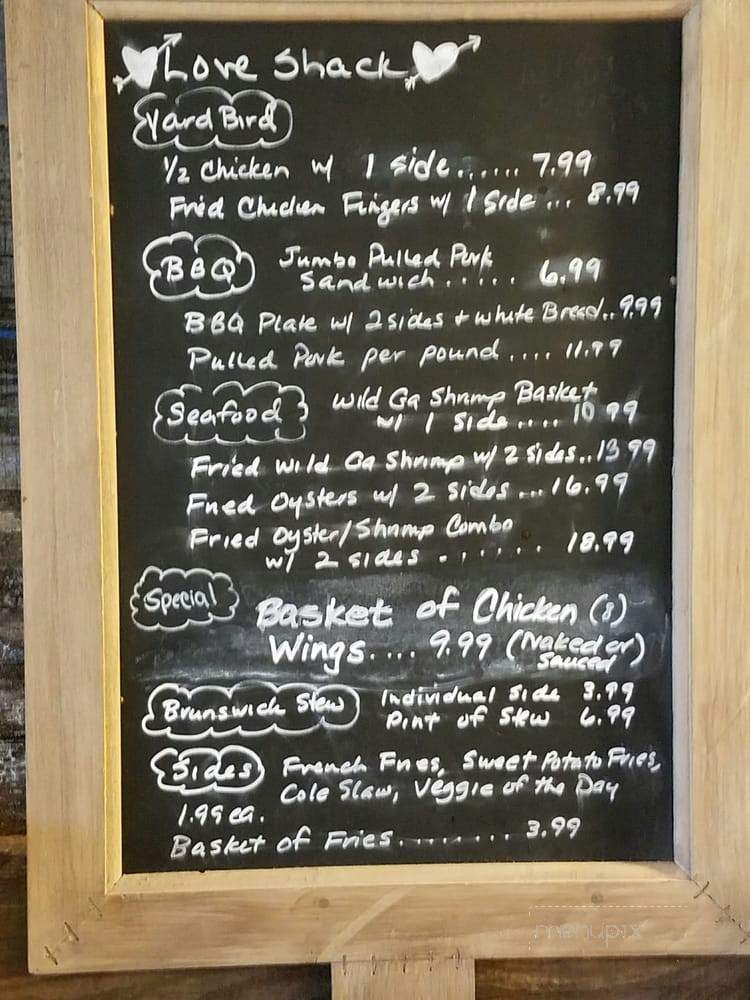 Love Shack
Yard Bird
1/2 Chicken w/ 1 side...... 7.99
Fried Chicken Fingers w/ 1 Side... 8.99
BBQ
Jumbo Pulled Pork
Sandwich..... 6.99
BBQ Plate w/ 2 sides + white Bread.. 9.99
Pulled Pork per pound.... 11.99
Seafood
Wild Ga Shrimp Basket
w/ 1 Side.... 10 99
Fried Wild Ga Shrimp w/ 2 sides.. 13 99
Fried Oysters w/ 2 sides... 16.99
Fried Oyster/Shrimp Combo
w/ 2 sides....... 18.99
Special
Basket of Chicken (8)
Wings.... 9.99 (Naked or)
Sauced
Brunswick Stew
Individual Side 3.99
Pint of Stew 6.99
Sides
French Fries, Sweet Potato Fries,
Cole Slaw, Veggie of the Day
1.99 ea.
Basket of Fries......... 3.99
menupix